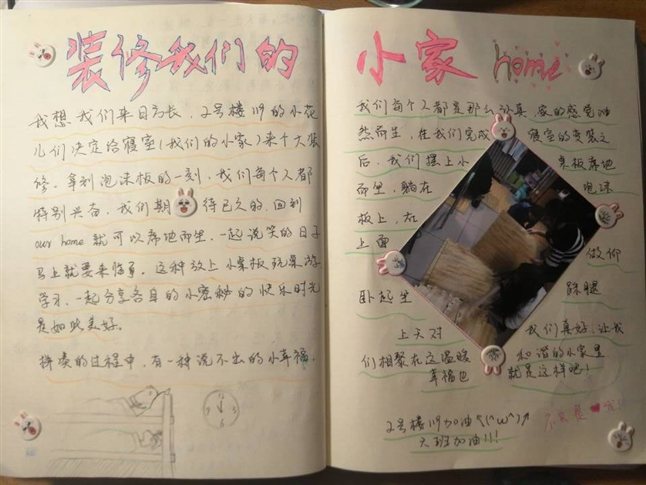 装修我们的
我想我们来日方长，2号楼119的小花
儿们决定给寝室(我们的小家)来个大装
修。拿到泡沫板的一刻，我们每个人都
特别兴奋，我们期待已久的，回到
our home 就可以席地而坐，一起说笑的日子
马上就要来临了。这种放上小桌板玩桌游
学习，一起分享各自的小秘密的快乐时光
是如此美好。
拼凑的过程中，有一种说不出的小幸福，
小家 home
我们每个人都是那么认真，家的感觉油
然而生，在我们完成寝室的变装之
后，我们摆上小桌板席地
而坐，躺在泡沫
板上，在
上面做仰
卧起坐踩腿
上天对我们真好，让我
们相聚在这温暖和谐的小家里
幸福也就是这样吧！
2号楼119加油↑(^ω^)↗
六班加油!!!